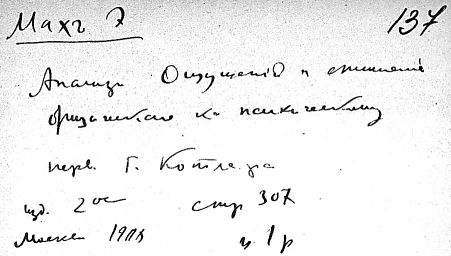 Махъ Э 137
Анализъ Ощущеній и отношеніе
физическаго къ психическому
перев. Г. Котляра
изд. 2ое стр 307
Москва 1908
ц 1 р